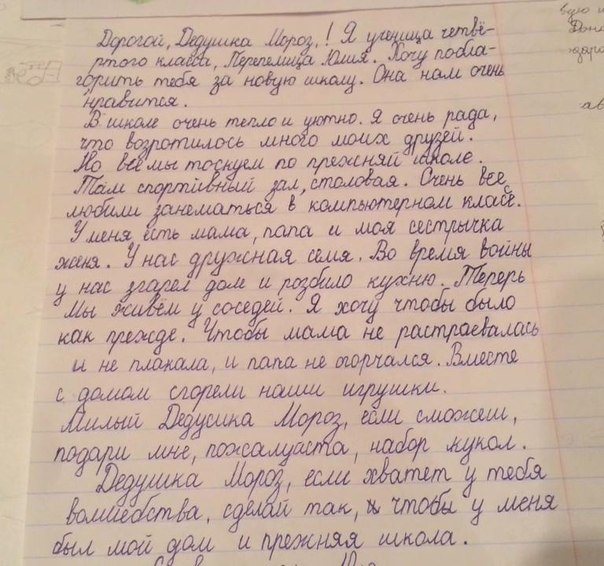 Дорогой, Дедушка Мороз,! Я ученица четвё-
ртого класса, Перепелица Юлия. Хочу побла-
горить тебя за новую школу. Она нам очень
нравится.
В школе очень тепло и уютно. Я очень рада,
что возротилось много моих друзей.
Но все мы тоскуем по прежняй школе.
Там спортивный зал, столовая. Очень все
любили занематься в компьютерном класе.
У меня есть мама, папа и моя сестрычка
женя. У нас дружная семя. Во время войны
у нас згарел дом и розбило кухню. Теперь
Мы живём у соседей. Я хочу чтобы было
как прежде. Чтобы мама не растраевалась
и не плакала, и папа не огорчался. Вместе
с домом сгорели наши игрушки.
Милый Дедусика Мороз, если сможеш,
подари мне, пожалуйста, набор кукол.
Дедушка Мороз, если хватет у тебя
волшебства, сделай так, и чтобы у меня
был мой дом и прежняя школа.